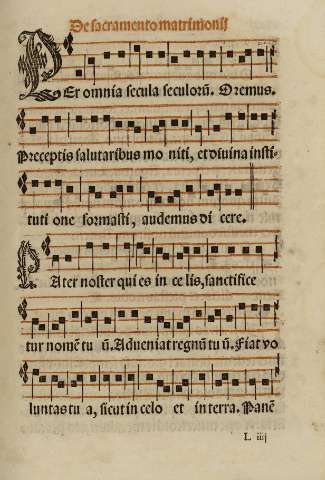 De sacramento matrimonij
PEr omnia secula seculorū. Oremus.
Preceptis salutaribus mo niti, et diuina insti-
tuti one formasti, audemus di cere.
PAter noster qui es in ce lis, sanctifice
tur nomē tu ū. Adueniat regnū tu ū. Fiat vo
luntas tu a, sicut in celo et in terra. Panē
L iiij